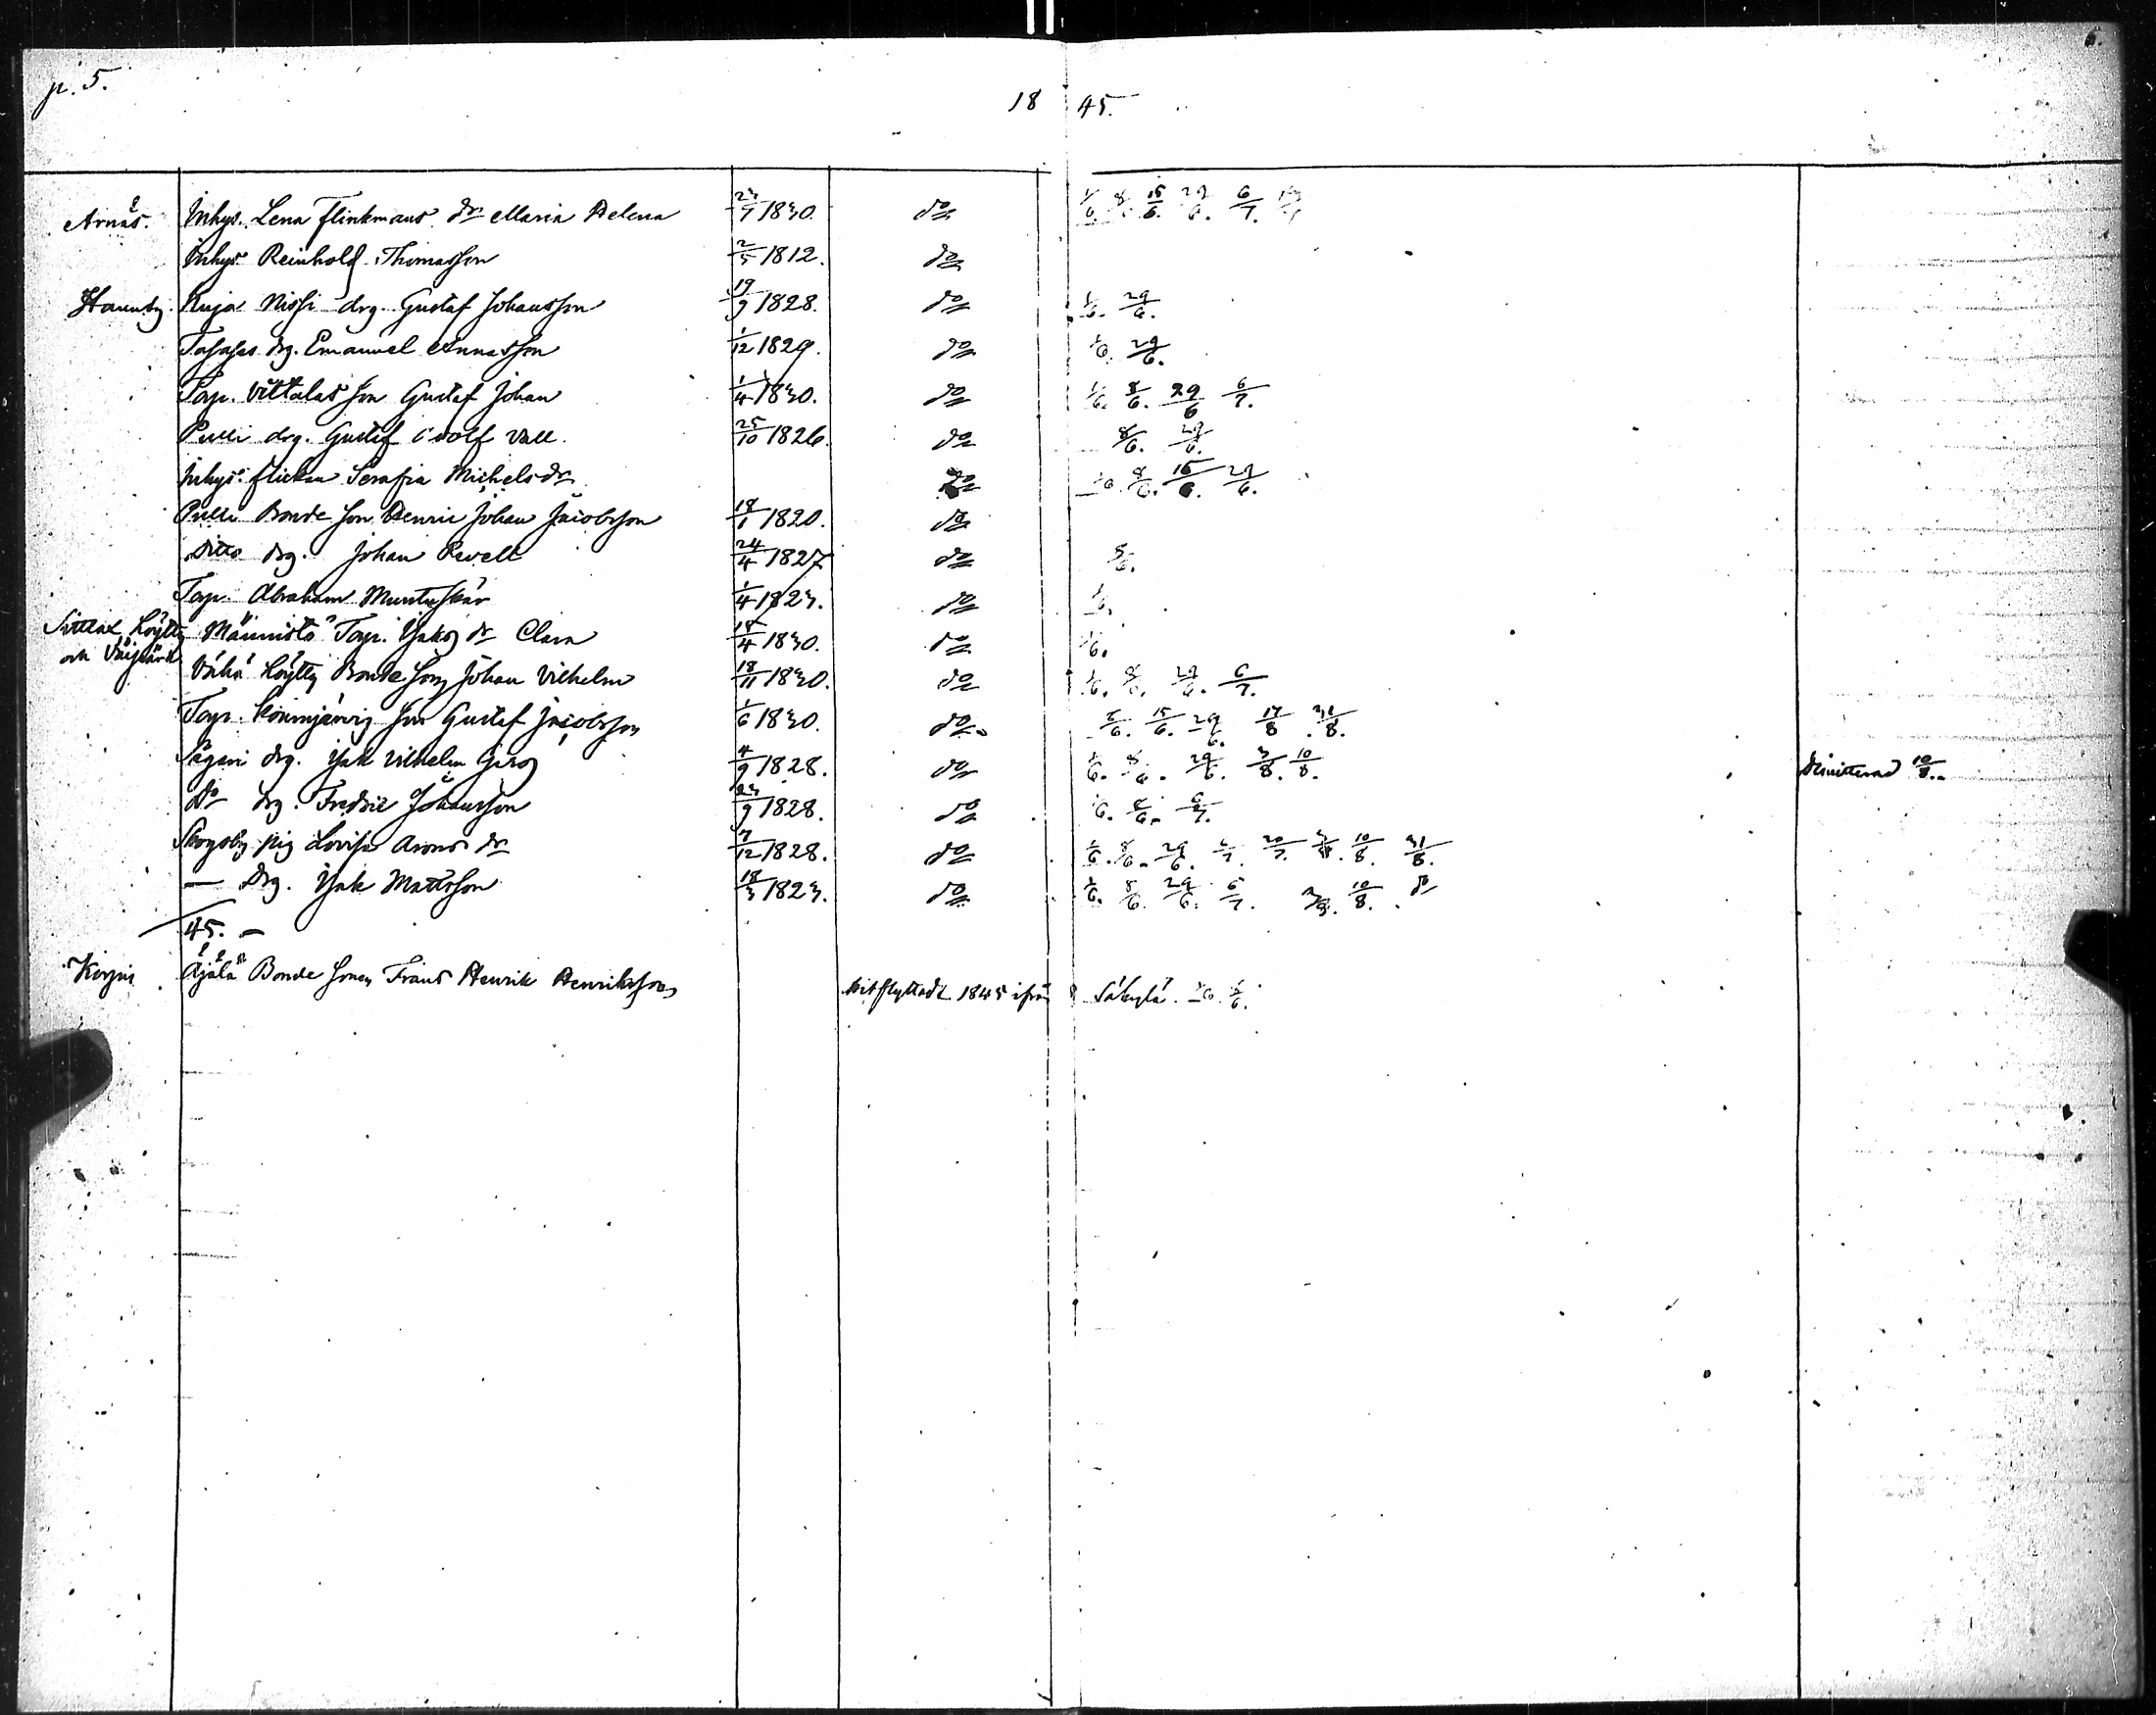 p. 5.
6.
18 45.
Arnäs. Inhys. Lena Flinkmans dr Maria Helena 23/7 1830. do 1/6. 8/6. 15/6. 29/6. 6/7.
Inhys. Reinhold Thomasson 2/5 1812. do
Hannby. Kuja Nissi drg. Gustaf Johansson 19/9 1828. do 1/6. 29/6.
drg. Emanuel Annasson 1/12 1829. do 1/6. 29/6.
Torp. son Gustaf Johan 1/4 1830. do 1/6. 8/6. 29/6 6/7.
Pulli drg. Gustaf Adolf Vall. 25/10 1826. do 8/6. 29/6.
Inhys: flickan Serafia Michelsdr do 8/6. 15/6. 29/6.
Pulli Bonde son Henric Johan Jacobsson 18/1 1820. do
Ditto drg. Johan Revell 24/4 1827 do 8/6.
Torp. Abraham 1/4 1823. do
Löytty Männistö Torp. Isaks dr Clara 18/4 1830. do 1/6.
och
Vähä Löytty Bonde son Johan Vilhelm 18/11 1830. do 1/6. 8/6. 29/6. 6/7.
Torp. son Gustaf Jacobsson 1/6 1830. do. 8/6. 15/6. 29/6. 17/8 31/8.
Sågari drg. Isak Vilhelm 4/9 1828. do 1/6. 8/6. 29/6. 3/8. 10/8. Dimitterad 10/8.
Do drg. Fredric Johansson 23/9 1828. do 1/6. 8/6. 6/7.
Skogsby pig Lovisa Arons dr 7/12 1828. do 1/6. 8/6. 29/6. 6/7. 20/7. 3/8. 10/8. 31/8.
— drg. Isak Mattsson 18/3 1823. do 1/6. 8/6. 29/6. 6/7. 3/8. 10/8. do
45. —
Äjälä Bonde sonen Frans Henrik Henriksson hitflyttadt 1845 ifrån Säkylä. 8/6.